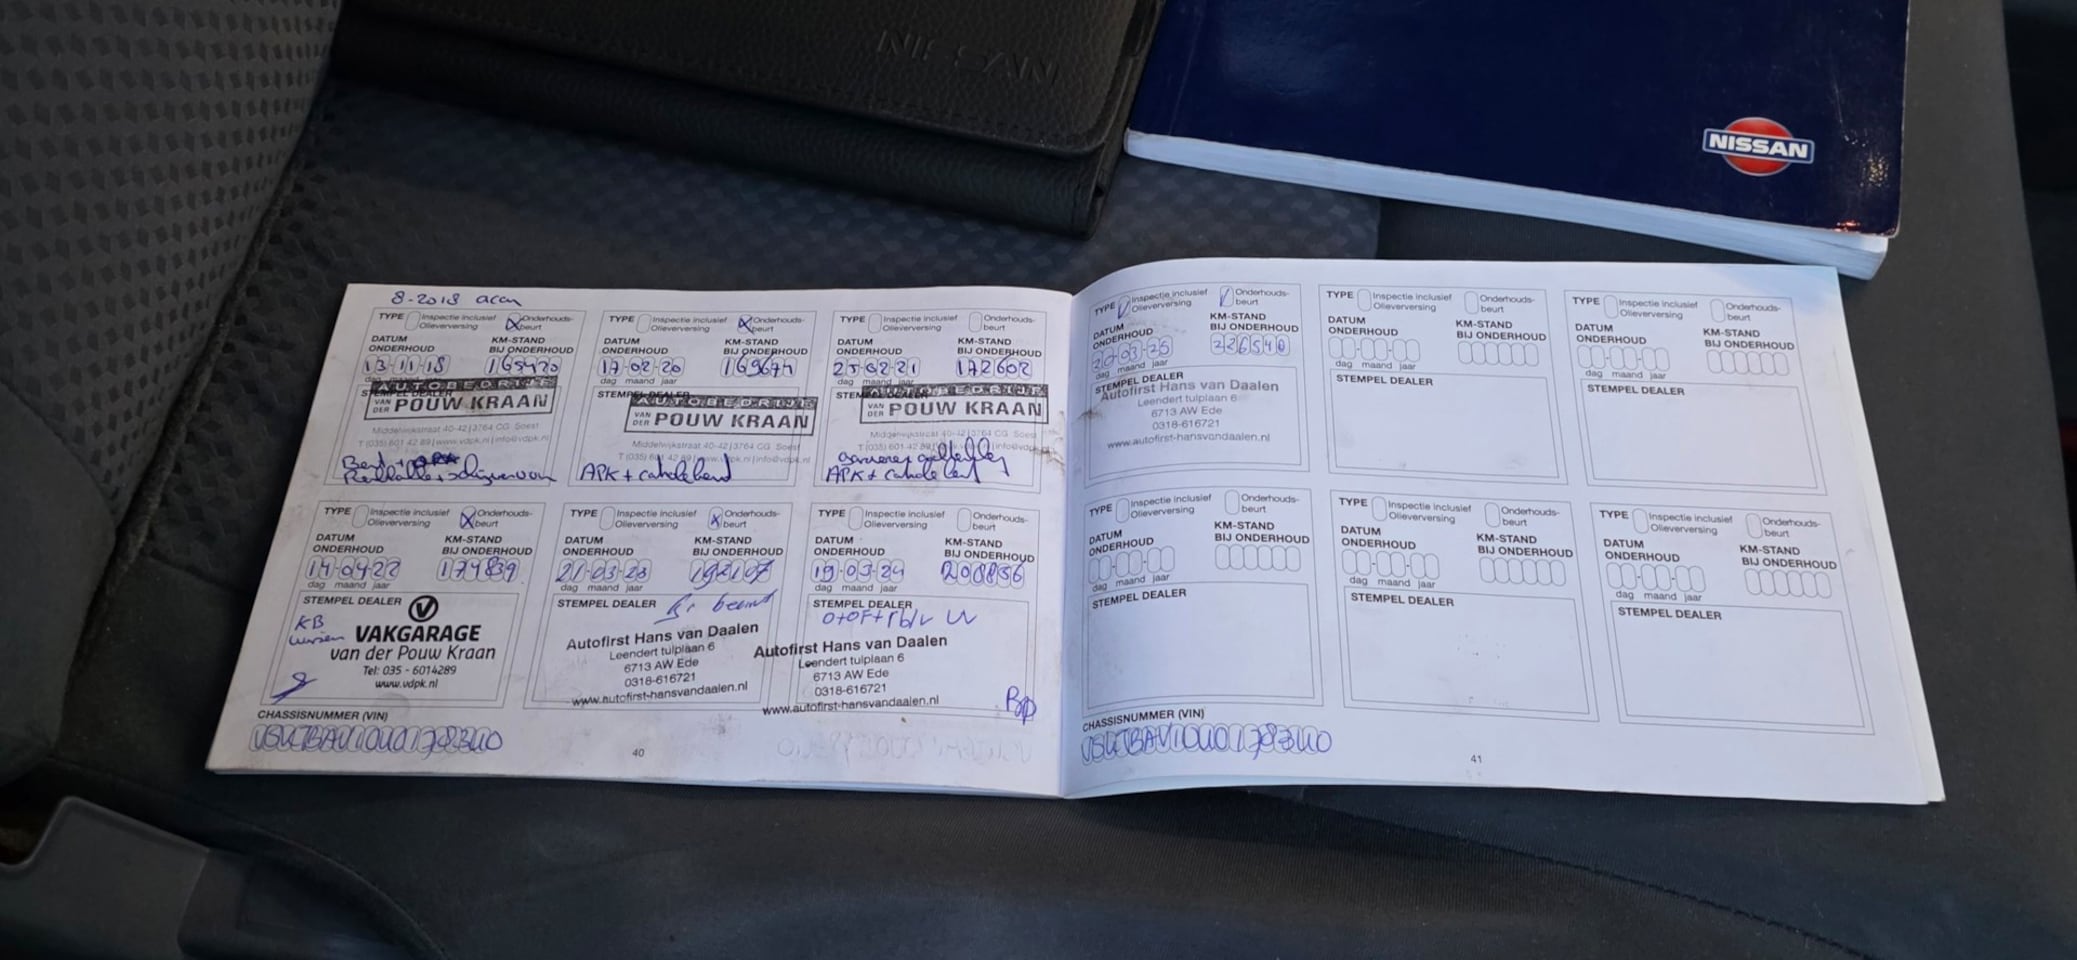 NISSAN
NISSAN
8-2018 accu
TYPE Inspectie inclusief Olieverversing X Onderhouds-beurt
DATUM ONDERHOUD KM-STAND BIJ ONDERHOUD
13-11-18 165420
dag maand jaar
STEMPEL DEALER
AUTOBEDRIJF
VAN DER POUW KRAAN
Middelwijkstraat 40-42 | 3764 CG Soest
T (035) 601 42 89 | www.vdpk.nl | info@vdpk.nl
TYPE Inspectie inclusief Olieverversing X Onderhouds-beurt
DATUM ONDERHOUD KM-STAND BIJ ONDERHOUD
17-02-20 169674
dag maand jaar
STEMPEL DEALER
AUTOBEDRIJF
VAN DER POUW KRAAN
Middelwijkstraat 40-42 | 3764 CG Soest
T (035) 601 42 89 | www.vdpk.nl | info@vdpk.nl
APK +
TYPE Inspectie inclusief Olieverversing Onderhouds-beurt
DATUM ONDERHOUD KM-STAND BIJ ONDERHOUD
25-02-21 172602
dag maand jaar
STEMPEL DEALER
AUTOBEDRIJF
VAN DER POUW KRAAN
Middelwijkstraat 40-42 | 3764 CG Soest
T (035) 601 42 89 | www.vdpk.nl | info@vdpk.nl
APK +
TYPE Inspectie inclusief Olieverversing X Onderhouds-beurt
DATUM ONDERHOUD KM-STAND BIJ ONDERHOUD
14-04-22 174839
dag maand jaar
STEMPEL DEALER
KB
VAKGARAGE
van der Pouw Kraan
Tel: 035 - 6014289
www.vdpk.nl
TYPE Inspectie inclusief Olieverversing X Onderhouds-beurt
DATUM ONDERHOUD KM-STAND BIJ ONDERHOUD
21-03-23 192107
dag maand jaar
STEMPEL DEALER
Autofirst Hans van Daalen
Leendert tulplaan 6
6713 AW Ede
0318-616721
www.autofirst-hansvandaalen.nl
TYPE Inspectie inclusief Olieverversing Onderhouds-beurt
DATUM ONDERHOUD KM-STAND BIJ ONDERHOUD
19-03-24 208856
dag maand jaar
STEMPEL DEALER
Autofirst Hans van Daalen
Leendert tulplaan 6
6713 AW Ede
0318-616721
www.autofirst-hansvandaalen.nl
CHASSISNUMMER (VIN)
40
TYPE Inspectie inclusief Olieverversing Onderhouds-beurt
DATUM ONDERHOUD KM-STAND BIJ ONDERHOUD
20-03-25 226540
dag maand jaar
STEMPEL DEALER
Autofirst Hans van Daalen
Leendert tulplaan 6
6713 AW Ede
0318-616721
www.autofirst-hansvandaalen.nl
TYPE Inspectie inclusief Olieverversing Onderhouds-beurt
DATUM ONDERHOUD KM-STAND BIJ ONDERHOUD
dag maand jaar
STEMPEL DEALER
TYPE Inspectie inclusief Olieverversing Onderhouds-beurt
DATUM ONDERHOUD KM-STAND BIJ ONDERHOUD
dag maand jaar
STEMPEL DEALER
TYPE Inspectie inclusief Olieverversing Onderhouds-beurt
DATUM ONDERHOUD KM-STAND BIJ ONDERHOUD
dag maand jaar
STEMPEL DEALER
TYPE Inspectie inclusief Olieverversing Onderhouds-beurt
DATUM ONDERHOUD KM-STAND BIJ ONDERHOUD
dag maand jaar
STEMPEL DEALER
TYPE Inspectie inclusief Olieverversing Onderhouds-beurt
DATUM ONDERHOUD KM-STAND BIJ ONDERHOUD
dag maand jaar
STEMPEL DEALER
CHASSISNUMMER (VIN)
41